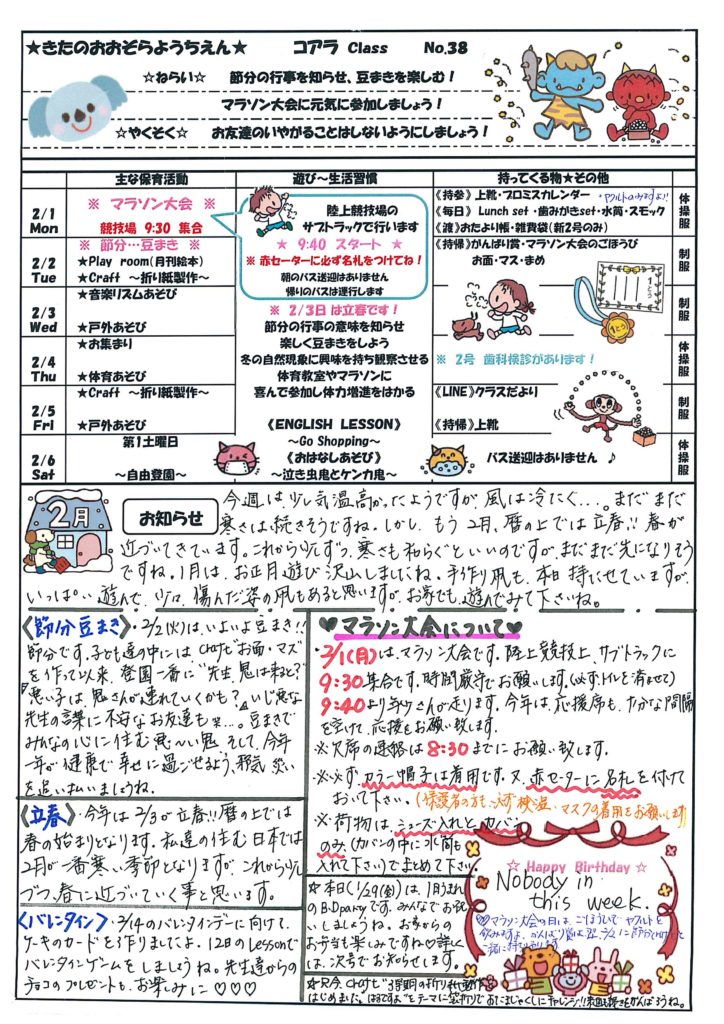 ★きたのおおぞらようちえん★ コアラ Class No.38
☆ねらい☆ 節分の行事を知らせ、豆まきを楽しむ！
マラソン大会に元気に参加しましょう！
☆やくそく☆ お友達のいやがることはしないようにしましょう！
主な保育活動 遊び～生活習慣 持ってくる物★その他
2/1 Mon
※ マラソン大会 ※
競技場 9:30 集合
陸上競技場の
サブトラックで行います
★ 9:40 スタート ★
※ 赤セーターに必ず名札をつけてね！
朝のバス送迎はありません
帰りのバスは運行します
《持参》上靴・プロミスカレンダー ・ヤクルトのみますよ!!
《毎日》 Lunch set・歯みがきset・水筒・スモック
《渡》おたより帳・雑費袋(新2号のみ)
体操服
2/2 Tue
※ 節分…豆まき ※
★Play room(月刊絵本)
★Craft ～折り紙製作～
《持帰》がんばり賞・マラソン大会のごほうび
お面・マス・まめ
制服
2/3 Wed
★音楽リズムあそび
★戸外あそび
※ 2/3日は立春です！
節分の行事の意味を知らせ
楽しく豆まきをしよう
冬の自然現象に興味を持ち観察させる
体育教室やマラソンに
喜んで参加し体力増進をはかる
制服
2/4 Thu
★お集まり
★体育あそび
※ 2号 歯科検診があります！
体操服
2/5 Fri
★Craft ～折り紙製作～
★戸外あそび
《ENGLISH LESSON》
～Go Shopping～
《LINE》クラスだより
《持帰》上靴
制服
2/6 Sat
第1土曜日
～自由登園～
《おはなしあそび》
～泣き虫鬼とケンカ鬼～
バス送迎はありません ♪
体操服
2月
お知らせ
今週は少し気温高かったようですが、風は冷たく….。まだまだ
寒さは続きそうですね。しかし、もう2月、暦の上では立春!! 春が
近づいてきています。これから少しずつ、寒さも和らぐといいのですが、まだまだ先になりそう
ですね。1月は、お正月遊び沢山しましたね。手作り凧も、本日持たせていますが、
いっぱい遊んで、少々、傷んだ姿の凧もあると思いますが、お家でも、遊んでみて下さいね。
《節分豆まき》・2/2(火)は、いよいよ豆まき!!
節分です。子ども達の中には、craftで"お面・マス"
を作って以来、登園一番に"先生、鬼は来ると?"
"悪い子は、鬼さんが連れていくかも?"いじ悪な
先生の言葉に不安なお友達も笑…。豆まきで
みんなの心に住む悪〜い鬼、そして、今年
一年が健康で幸せに過ごせるよう、邪気、災い
を追い払いましょうね。
《立春》今年は2/3が立春!!暦の上では
春の始まりとなります。私達の住む日本では
2月が一番寒い季節となりますが、これから少し
づつ、春に近づいていく事と思います。
〈バレンタイン〉・2/14のバレンタインデーに向けて、
ケーキのカードを作りましたよ。12日のLessonで
バレンタインゲームをしましょうね。先生達からの
チョコのプレゼントも、お楽しみに♡♡♡
♥マラソン大会について♥
・2/1(月)は、マラソン大会です。陸上競技上、サブトラックに
9:30集合です。時間厳守でお願いします。(必ず、トイレを済ませて)
9:40より年少さんが走ります。今年は、応援席も、十分な間隔
を空けて、応援をお願い致します。
※欠席の連絡は8:30までにお願い致します。
※必ず、カラー帽子は着用です。又、赤セーターに名札を付けて
おいて下さい。(保護者の方も、必ず検温・マスクの着用をお願いします)
※荷物は、シューズ入れとカバン
のみ(カバンの中に水筒も
入れて下さい)でまとめて下さい。
☆本日(1/29(金))は、1月うまれ
のB.Dpartyです。みんなでお祝い
しましょうね。お家からの
お弁当も楽しみですね♡詳しく
は、次号でお知らせします。
☆ Happy Birthday ☆
Nobody in
this week.
♡マラソン大会の日は、ごほうびで ヤクルトを
飲みますよ。